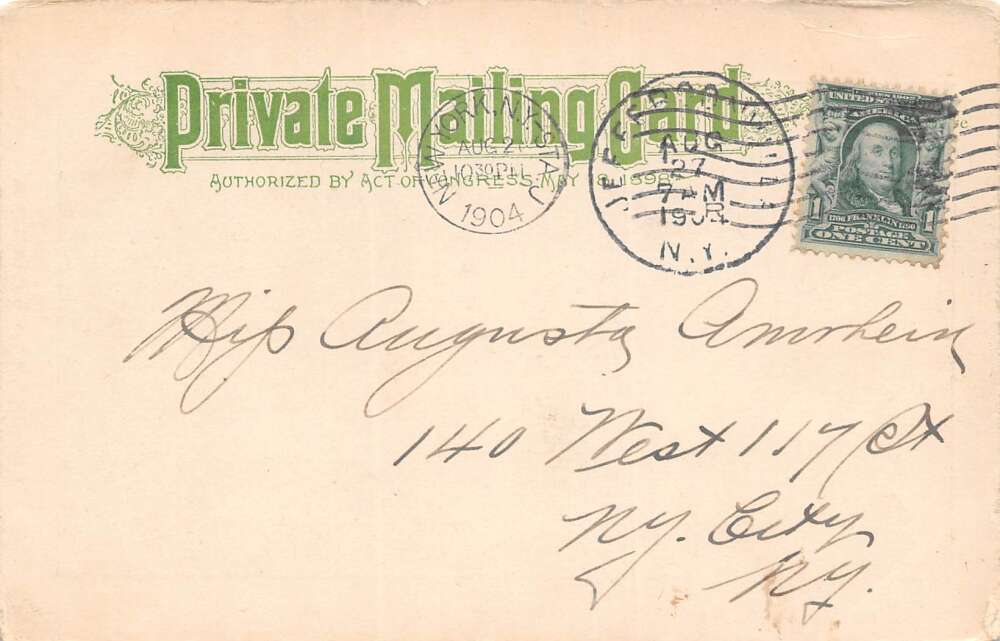 Private Mailing Card
AUTHORIZED BY ACT OF CONGRESS, MAY 19, 1898.
NEW YORK, N.Y. STA. J
AUG 2
10 30 PM
1904
JEFFERSONVILLE
AUG
27
7 AM
1904
N.Y.
UNITED STATES OF AMERICA
1706 FRANKLIN 1790
1 POSTAGE 1
ONE CENT
Miss Augusta Amrhein
140 West 117 St
NY. City
NY.